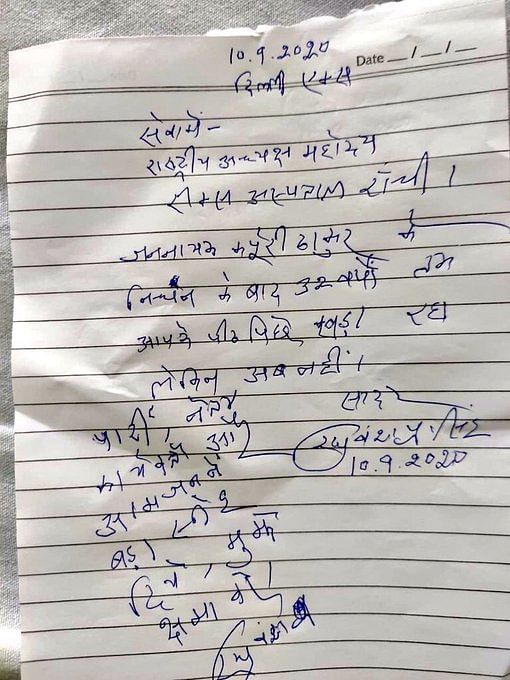 10.9.2020
Date __/__/__
दिल्ली एम्स
सेवामें-
राष्ट्रीय अध्यक्ष महोदय
रीम्स अस्पताल राँची।
जननायक कर्पूरी ठाकुर के
निधन के बाद 32 वर्षों तक
आपके पीठ पीछे खड़ा रहा
लेकिन अब नहीं।
पार्टी, नेता
कार्यकर्ता और
आमजन ने
बड़ा स्नेह
दिया, मुझे
क्षमा करें।
सादर
रघुवंश प्र० सिंह
10.9.2020